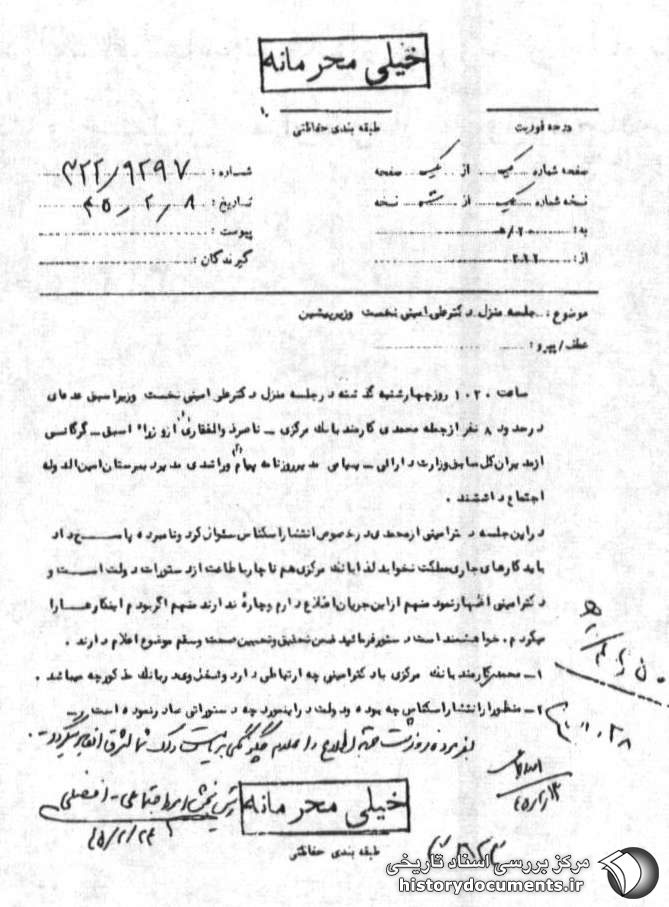 خیلی محرمانه
درجه فوریت
طبقه بندی حفاظتی
صفحه شماره یک از یک صفحه
شماره: ۳۲۲/۹۲۹۷
نسخه شماره یک از سه نسخه
تاریخ: ۴۵/۲/۸
به: ۲۰ ه/
پیوست:
از: ۳۲۲
گیرندگان:
موضوع: جلسه منزل دکتر علی امینی نخست وزیر پیشین
عطف/پیرو:
ساعت ۱۰۲۰ روز چهارشنبه گذشته در جلسه منزل دکتر علی امینی نخست وزیر اسبق عده‌ای
در حدود ۸ نفر از جمله محمدی کارمند بانک مرکزی ـ ناصر ذوالفقاری از وزراء اسبق ـ گرگانی
از مدیران کل سابق وزارت دارائی ـ مدیر روزنامه پیام و راشدی مدیر دبیرستان امین الدوله
اجتماع داشتند.
در این جلسه دکتر امینی از محمدی در خصوص انتشار اسکناس سئوال کرد و نامبرده پاسخ داد
باید کارهای جاری مملکت نخوابد لذا بانک مرکزی هم ناچار با طاعت از دستورات دولت است و
دکتر امینی اظهار نمود منهم از این جریان اطلاع دارم و چاره ندارند منهم اگر بودم اینکار ها را
میکردم. خواهشمند است دستور فرمائید ضمن تحقیق و تعیین صحت و سقم موضوع اعلام دارند.
۱ـ محمدی کارمند بانک مرکزی با دکتر امینی چه ارتباطی دارد و شغل وی در بانک مذکور چه میباشد.
۲ـ منظور از انتشار اسکناس چه بوده و دولت در اینمورد چه دستوراتی صادر نموده است.
۴۵/۲/۲۴
خیلی محرمانه
طبقه بندی حفاظتی
مرکز بررسی اسناد تاریخی
historydocuments.ir